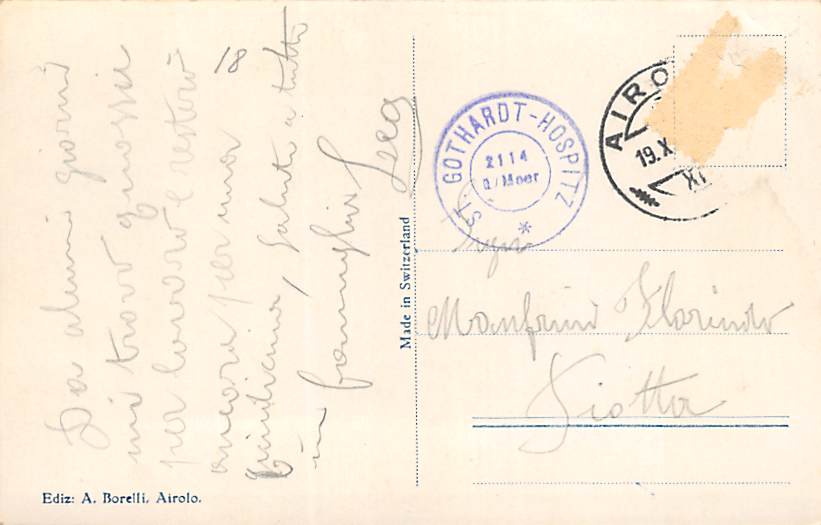 Da alcuni giorni
mi trovo quassù
per lavoro e resterò
ancora per una
quindicina, saluti a tutti
in famiglia
18
Made in Switzerland
ST. GOTHARDT-HOSPITZ
2114
ü/Meer
*
AIRO
19.X
XI
Sign
Manfrini Florindo
Fiotta
Ediz: A. Borelli, Airolo.